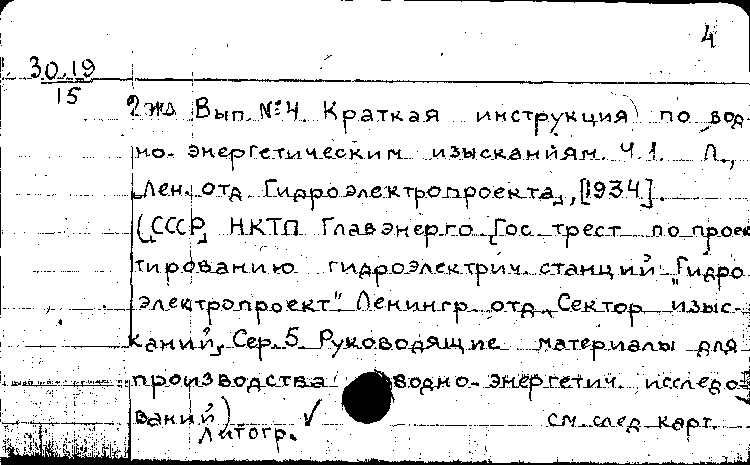 4
30.19
15
2жд Вып. №4 Краткая инструкция по вод-
но-энергетическим изысканиям. Ч.1. Л.,
"Лен. отд. Гидроэлектропроекта", [1934].
(СССР. НКТП Главэнерго Гос. трест по проек
тированию гидроэлектрич. станций „Гидро
электропроект" Ленингр. отд. Сектор изыс-
каний. Сер. 5. Руководящие материалы для
производства водно-энергетич. исследо-
ваний)
Литогр. ✓ см. след. карт.